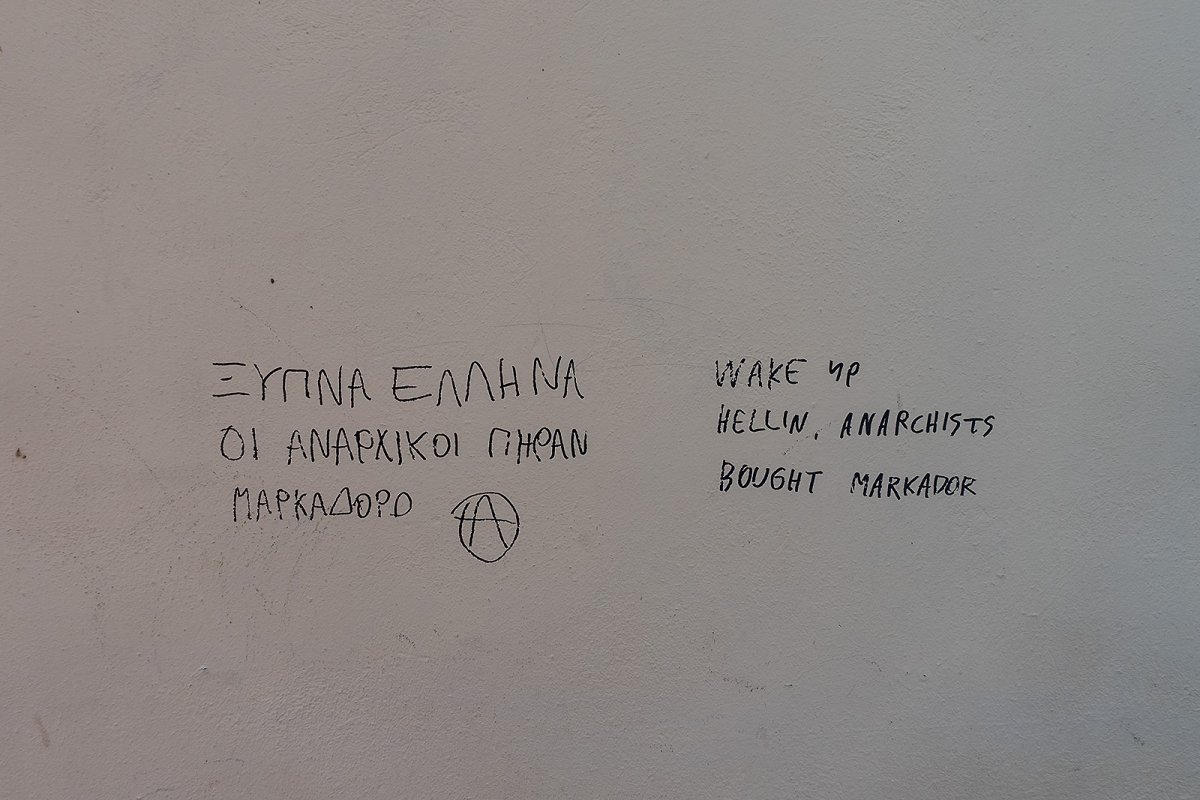 ΞΥΠΝΑ ΕΛΛΗΝΑ
ΟΙ ΑΝΑΡΧΙΚΟΙ ΠΗΡΑΝ
ΜΑΡΚΑΔΟΡΟ Ⓐ
WAKE UP
HELLIN, ANARCHISTS
BOUGHT MARKADOR